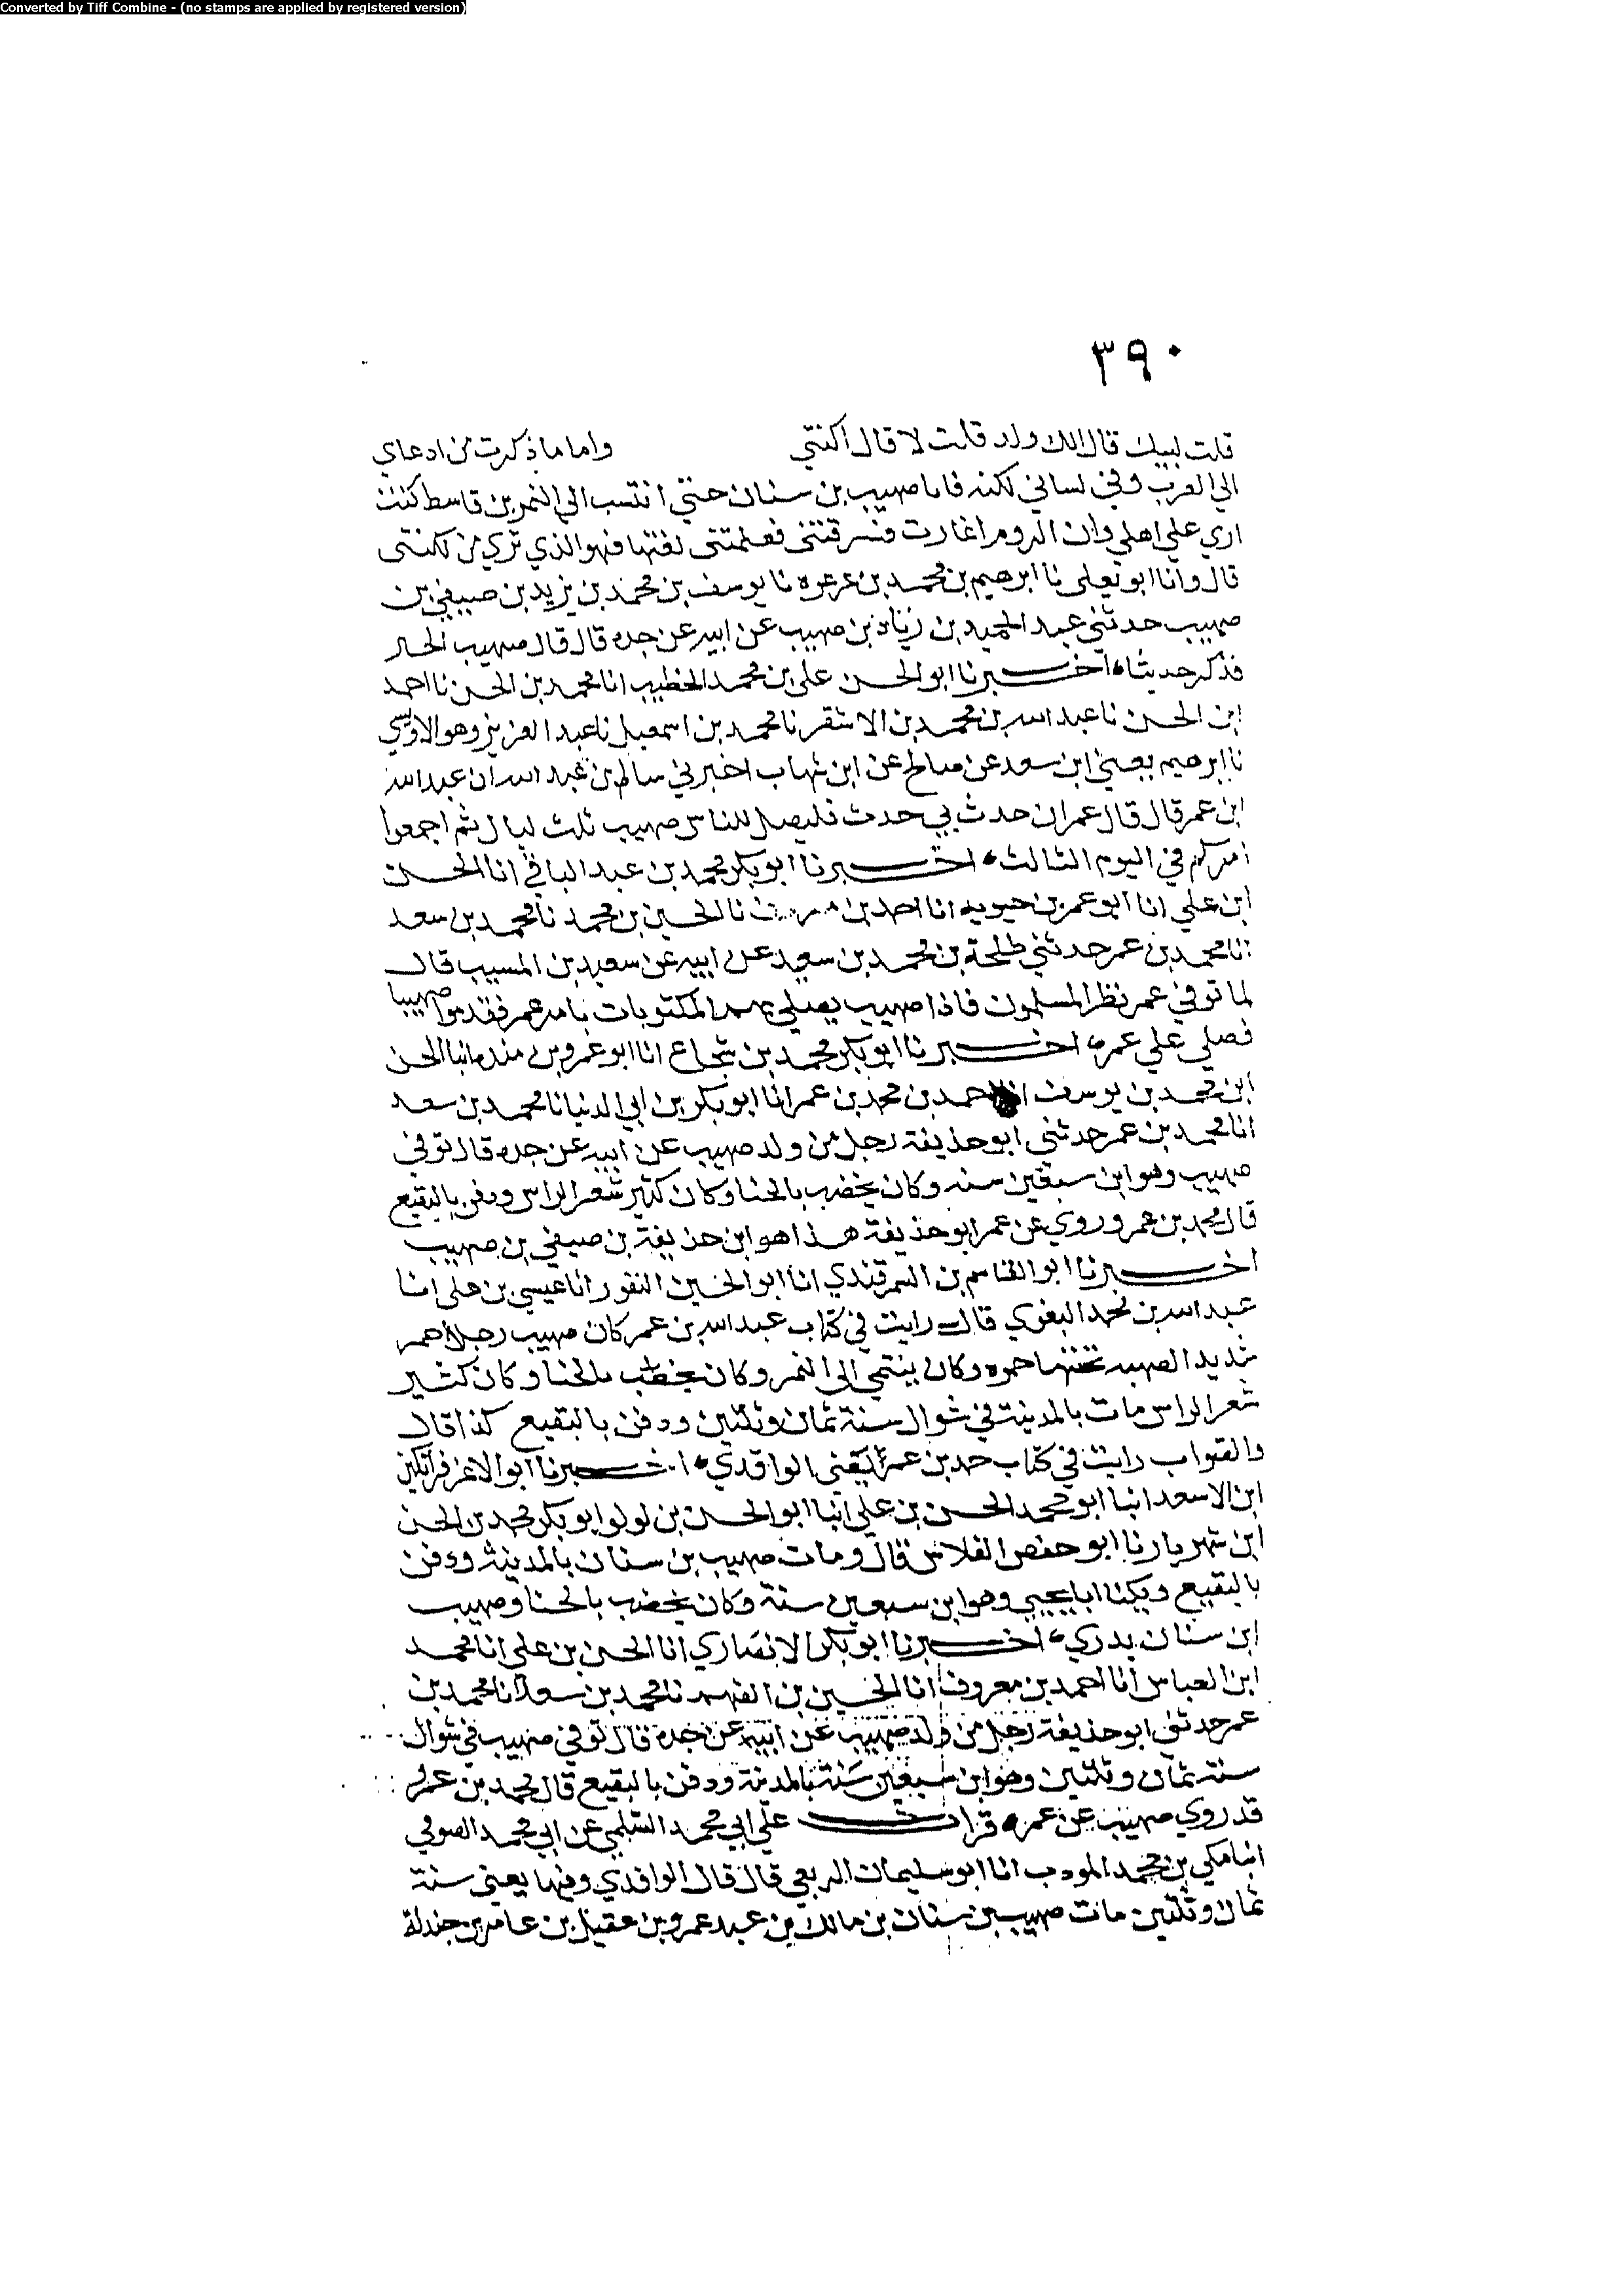 Converted by Tiff Combine - (no stamps are applied by registered version)
٣٩٠
قلت لبيك قال الك ولد قلت لا قال اكنتي واما ما ذكرت من ادعاي
الي العرب وفي لساني لكنه فانا صهيب بن سنان حتي انتسب الي النمر بن قاسط كنت
اري علي اهلي وان الروم اغارت فسرقتني فعلمتني لغتها فهو الذي تري من لكنتي
قال وانا ابو يعلى نا ابرهيم بن محمد بن عرعره نا يوسف بن محمد بن يزيد بن صيفي بن
صهيب حدثني عبد الحميد بن زياد بن صهيب عن ابيه عن جده قال قال صهيب
فذكر حديثا اخبرنا ابو الحسن علي بن محمد الخطيب انا محمد بن الحسن نا احمد
ابن الحسن نا عبد الله بن محمد بن الاشقر نا محمد بن اسمعيل نا عبد العزيز وهو الاويسي
نا ابرهيم يعني ابن سعد عن صالح عن ابن شهاب اخبرني سالم بن عبد الله ان عبد الله
ابن عمر قال قال عمر ان حدث بي حدث فليصل للناس صهيب ثلث ليال ثم اجمعوا
امركم في اليوم الثالث اخبرنا ابو بكر محمد بن عبد الباقي انا الحسن
ابن علي انا ابو عمر بن حيويه انا احمد بن نا الحسين بن محمد نا محمد بن سعد
انا محمد بن عمر حدثني طلحة بن محمد بن سعيد عن ابيه عن سعيد بن المسيب قال
لما توفي عمر نظر المسلمون فاذا صهيب يصلي بهم المكتوبات بامر عمر فقدموا صهيبا
فصلي علي عمر اخبرنا ابو بكر محمد بن شجاع انا ابو عمرو بن منده انبا الحسن
ابن محمد بن يوسف احمد بن محمد بن عمر انا ابو بكر بن ابي الدنيا نا محمد بن سعد
انا محمد بن عمر حدثني ابو حذيفة رجل من ولد صهيب عن ابيه عن جده قال توفي
صهيب وهو ابن سبعين سنه وكان يخضب بالحنا وكان كثير شعر الراس ودفن بالبقيع
قال محمد بن عمر وروي عن عمر ابو حذيفة هذا هو ابن حذيفة بن صيفي بن صهيب
اخبرنا ابو القاسم بن السمرقندي انا ابو الحسين النقور انا عيسي بن علي انا
عبد الله بن محمد البغوي قال رايت في كتاب عبد الله بن عمر كان صهيب رجلا احمر
شديد الصهبه تحتها حمره وكان ينتمي الي النمر وكان يخضب بالحنا وكان كثير
شعر الراس مات بالمدينة في شوال سنة ثمان وثلثين ودفن بالبقيع كذا قال
والصواب رايت في كتاب محمد بن عمر يعني الواقدي اخبرنا ابو الاعز قراتكين
ابن الاسعد انبا ابو محمد الحسن بن علي انبا ابو الحسن بن لولو ابو بكر محمد بن الحسن
ابن شهريار نا ابو حفص الفلاس قال ومات صهيب بن سنان بالمدينة ودفن
بالبقيع ويكنا ابا يحيي وهو ابن سبعين سنة وكان يخضب بالحنا وصهيب
ابن سنان بدري اخبرنا ابو بكر الانصاري انا الحسن بن علي انا محمد
ابن العباس انا احمد بن معروف انا الحسين بن الفهم نا محمد بن سعد انا محمد بن
عمر حدثني ابو حذيفة رجل من ولد صهيب عن ابيه عن جده قال توفي صهيب في شوال
سنة ثمان وثلثين وهو ابن سبعين سنة بالمدينة ودفن بالبقيع قال محمد بن عمر
قد روي صهيب عن عمر قرات علي ابي محمد السلمي عن ابي محمد الصوفي
انبا مكي بن محمد المودب انا ابو سليمان الربعي قال قال الواقدي وفيها يعني سنة
ثمان وثلثين مات صهيب بن سنان بن مالك بن عبد عمرو بن عقيل بن عامر بن جندلة